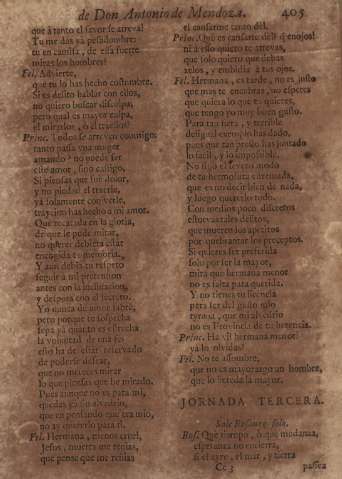 de Don Antonio de Mendoza. 405
que à tanto el favor se atreva!
Tu me das ya pesadumbre:
tu en cansar, de essa suerte
miras los hombres?
Fel. Advierte,
que tu lo has hecho costumbre.
Si es delito hablar con ellos,
no quiero buscar disculpa,
pero qual es mayor culpa,
el mirarlos, ò el traellos?
Princ. Todos se atreven conmigo:
tanto passa una muger
amando? no puede ser
este amor, sino castigo.
Si piensas que fue amor,
y no piedad el traerle,
yà solamente con verle,
traycion has hecho à mi amor.
Que recatada en la gloria,
de que le pude mirar,
no querer debiera estar
encogida tu memoria,
Y aun debia tu respeto
seguir à mi pretension
antes con la inclinacion,
y despues con el secreto.
Yo nunca de amor sabrè,
pero porque te sospecha
sepa yà quanto es estrecha
la voluntad de una fè
esso ha de estar reservado
de poderse dessear,
que no mereces mirar
lo que piensas que he mirado.
Pues aunque no es para mi,
quedas yà sin alvedrio,
que en pensando que era mio,
no es quererlo para ti.
Fel. Hermana, menos cruel,
Jesus, muerta me tenias,
què pensè que me reñias
el cansarme tanto del.
Princ. Què en cansarte dèl? què enojos!
ni à esso quiero te atrevas,
que solo quiero que debas
zelos, y embidia à tus ojos.
Fel. Hermana, es tarde, no es justo
que mas te encubras, no esperes
que quiera lo que tu quieres,
que tengo yo muy buen gusto.
Para tan rara, y terrible
desigual exemplo has dado,
pues que tan presto has juntado
lo facil, y lo impossible.
No sigo el severo modo
de tu hermosura extremada,
que es no decirles de nada,
y luego quererlo todo.
Con medios poco discretos
estorvas tales delitos,
que mueren los apetitos
por quebrantar los preceptos.
Si quieres ser preferida
solo por ser la mayor,
mira que hermana menor
no es falta para querida.
Y no tienes tu licencia
para ser del gusto mio
tyrana, que mi alvedrio
no es Provincia de tu herencia.
Princ. Ha vil hermana menor!
yà lo olvidas?
Fel. No te assombre,
que no es mayorazgo un hombre,
que lo hereda la mayor.
JORNADA TERCERA.
Sale Rosaura sola.
Ros. Què tiempo, ò què mudanza,
esperanza no encierra,
si el ayre, el mar, y tierra
Cc 3 passea